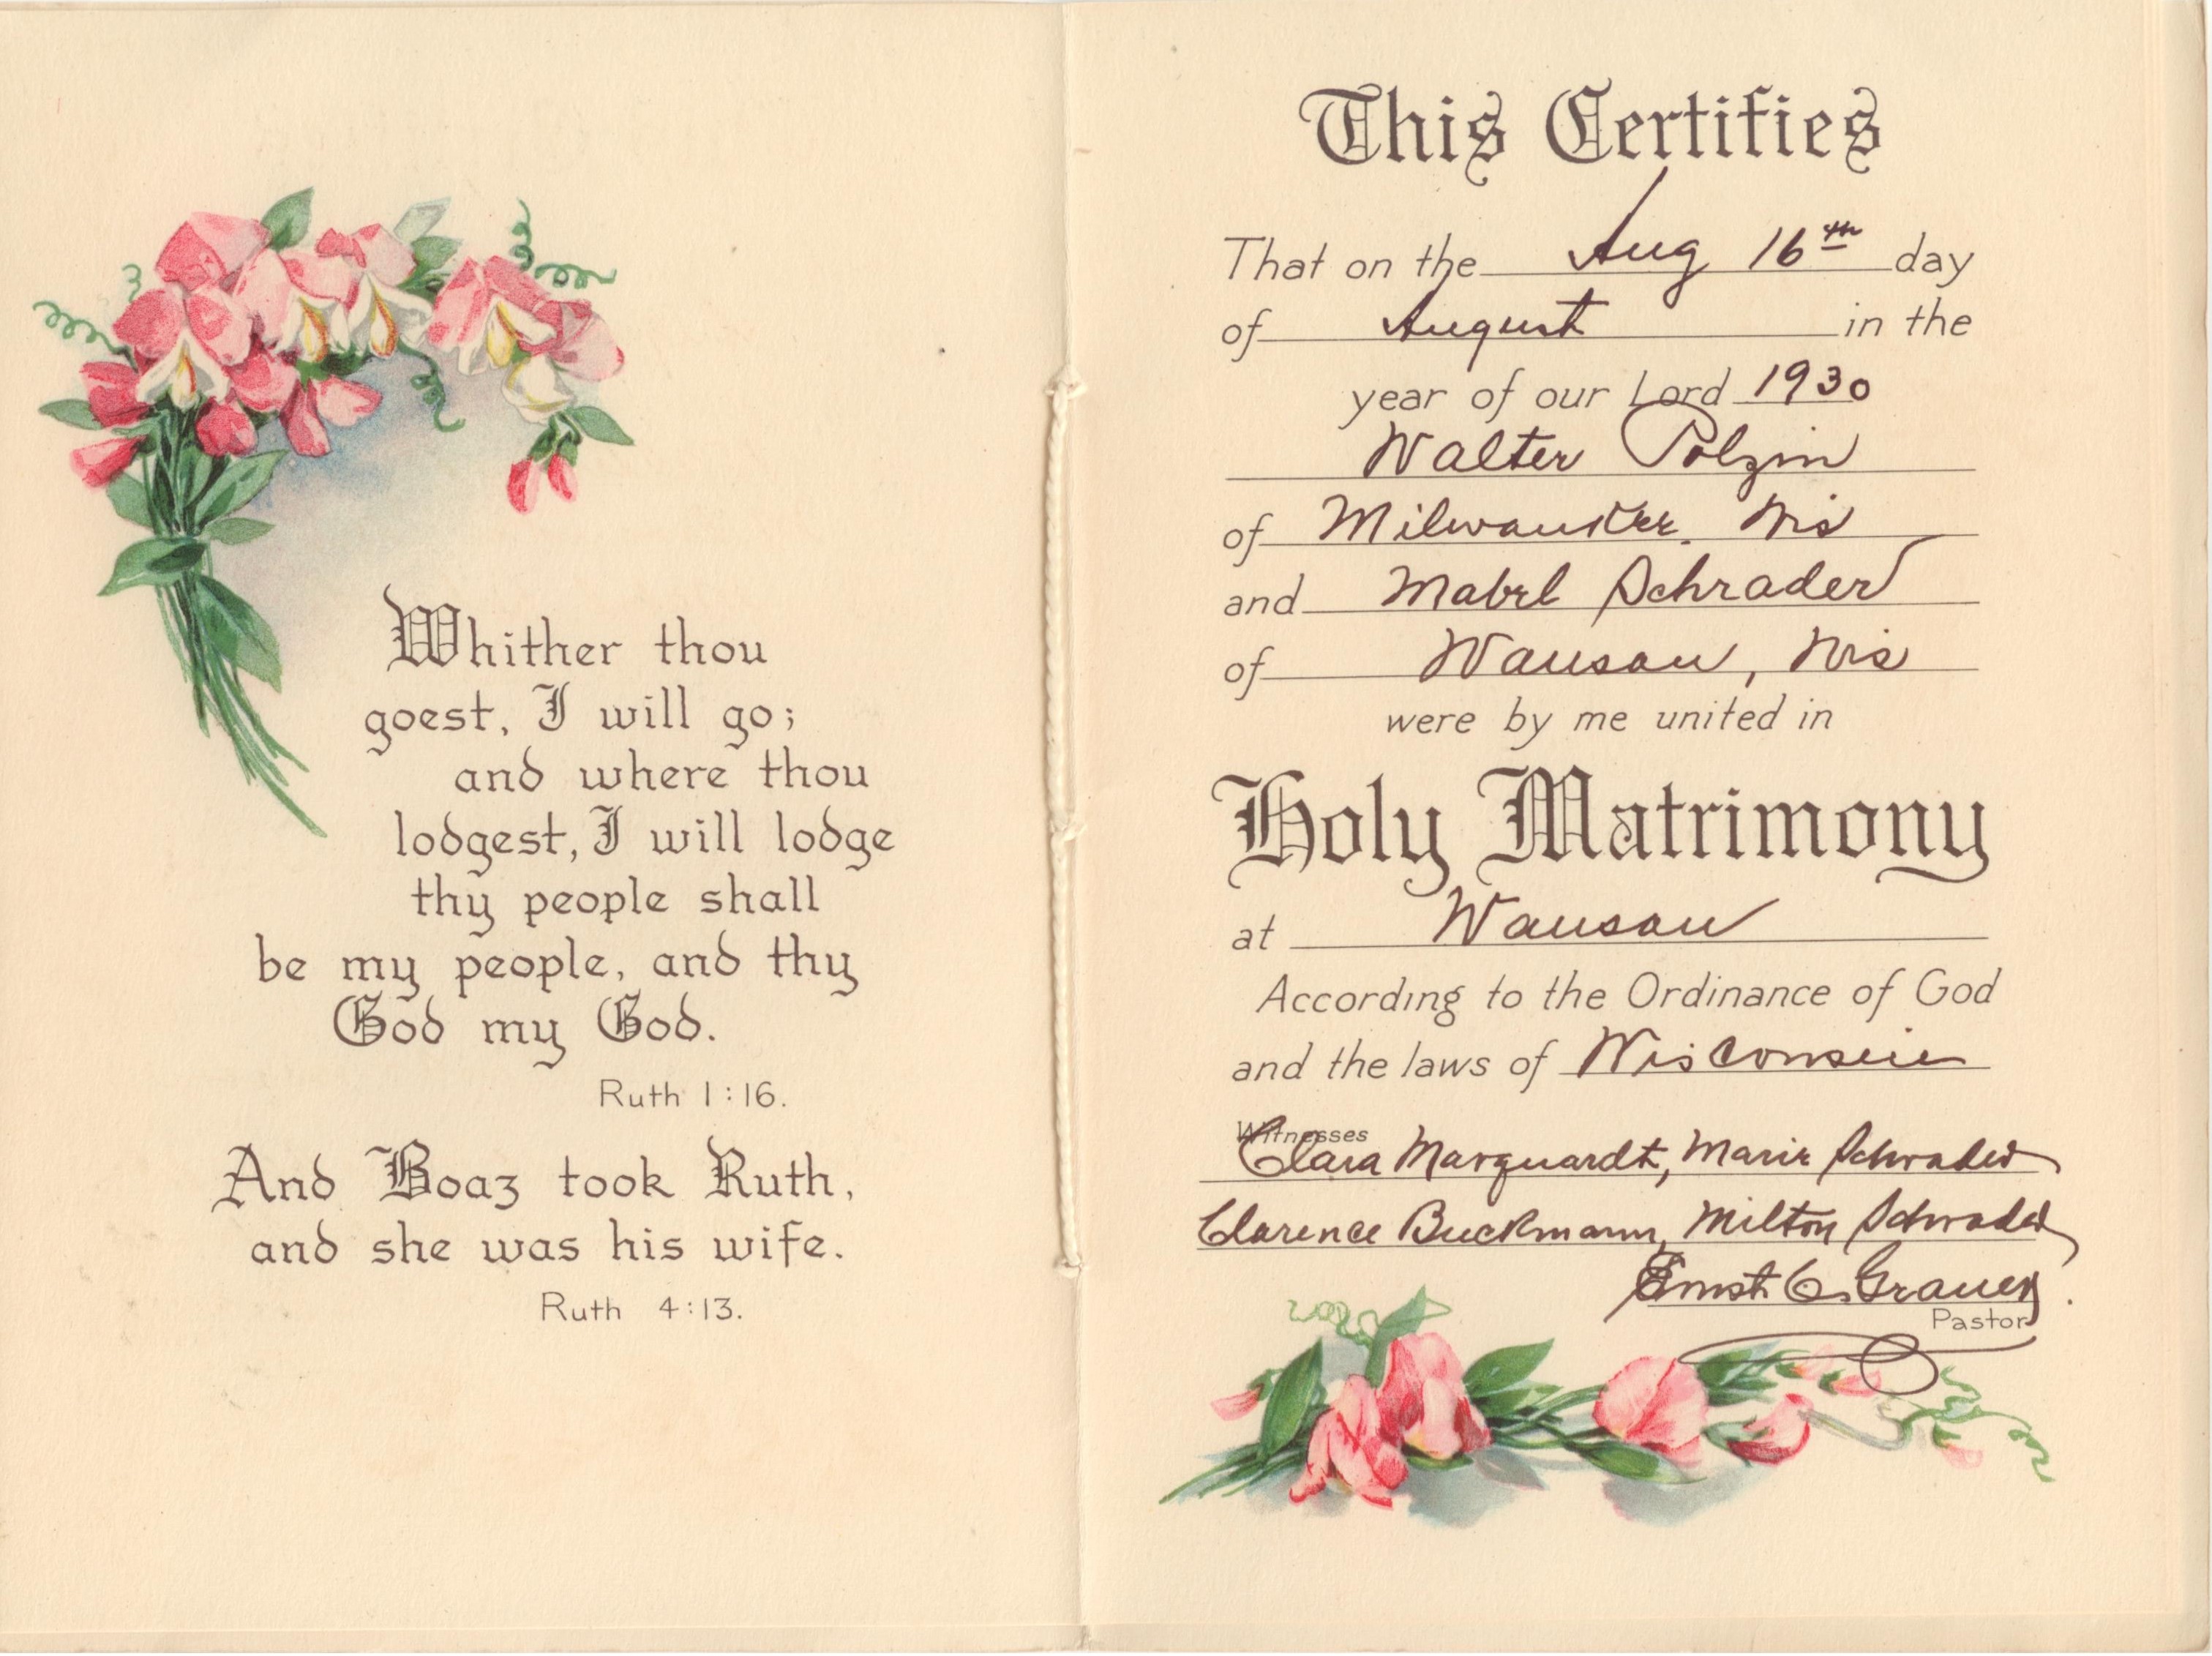 Whither thou
goest, I will go;
and where thou
lodgest, I will lodge
thy people shall
be my people, and thy
God my God.
Ruth 1:16.
And Boaz took Ruth,
and she was his wife.
Ruth 4:13.
This Certifies
That on the Aug 16th day
of August in the
year of our Lord 1930
Walter Polzin
of Milwaukee. Wis
and Mabel Schrader
of Wausau, Wis
were by me united in
Holy Matrimony
at Wausau
According to the Ordinance of God
and the laws of Wisconsin
Witnesses
Clara Marquardt, Marie Schrader
Clarence Buckmann, Milton Schrader
Ernst C. Grauer.
Pastor